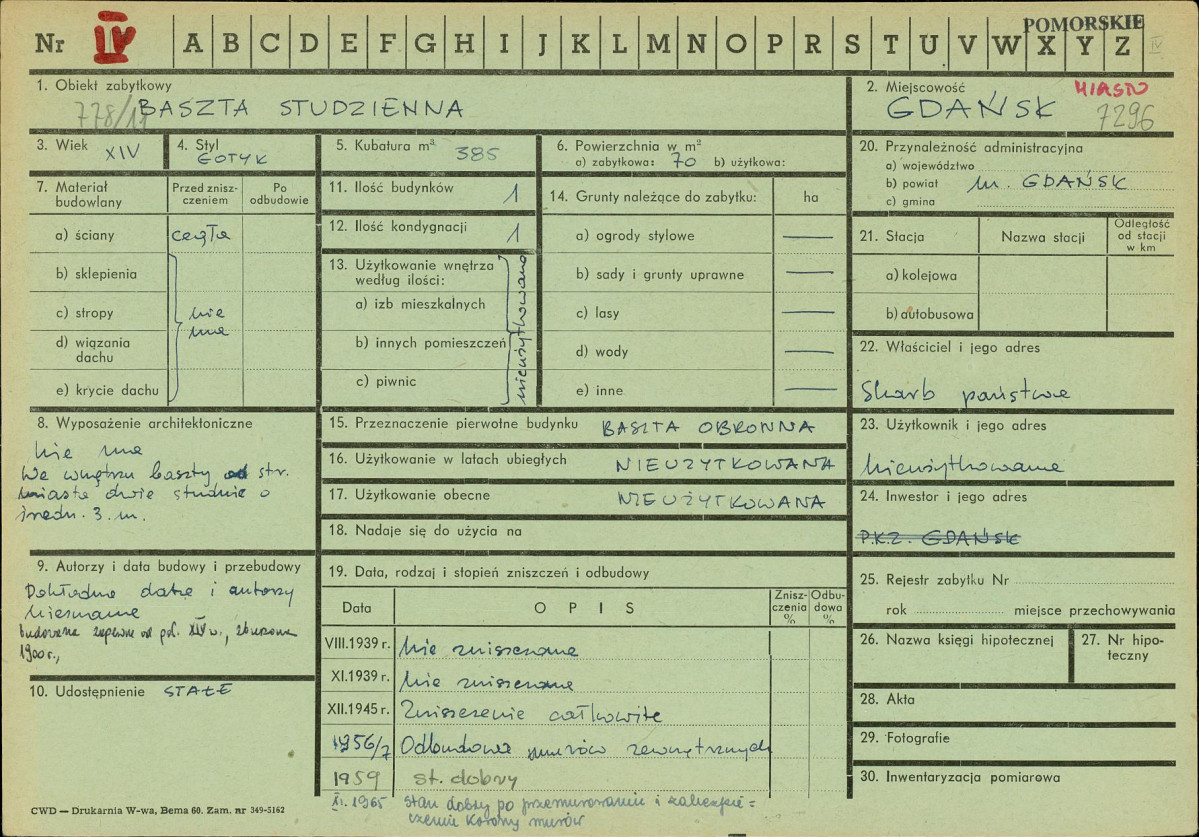 Nr IV A B C D E F G H I J K L M N O P R S T U V W X Y Z IV
POMORSKIE
1. Obiekt zabytkowy
778/11 BASZTA STUDZIENNA
2. Miejscowość MIASTO
GDAŃSK 7296
3. Wiek XIV
4. Styl
GOTYK
5. Kubatura m³ 385
6. Powierzchnia w m²
a) zabytkowa: 70 b) użytkowa:
7. Materiał
budowlany
Przed znisz-
czeniem
Po
odbudowie
a) ściany cegła
b) sklepienia
c) stropy nie
ma
d) wiązania
dachu
e) krycie dachu
11. Ilość budynków 1
12. Ilość kondygnacji 1
13. Użytkowanie wnętrza
według ilości:
a) izb mieszkalnych
b) innych pomieszczeń
c) piwnic
nieużytkowano
14. Grunty należące do zabytku: ha
a) ogrody stylowe —
b) sady i grunty uprawne —
c) lasy —
d) wody —
e) inne —
20. Przynależność administracyjna
a) województwo
b) powiat m. GDAŃSK
c) gmina
21. Stacja Nazwa stacji
Odległość
od stacji
w km
a) kolejowa
b) autobusowa
22. Właściciel i jego adres
Skarb państwa
23. Użytkownik i jego adres
Nieużytkowana
24. Inwestor i jego adres
P.K.Z. GDAŃSK
25. Rejestr zabytku Nr
rok miejsce przechowywania
26. Nazwa księgi hipotecznej
27. Nr hipo-
teczny
28. Akta
29. Fotografie
30. Inwentaryzacja pomiarowa
8. Wyposażenie architektoniczne
Nie ma
We wnętrzu baszty od str.
miasta dwie studnie o
średn. 3. m.
9. Autorzy i data budowy i przebudowy
Dokładna data i autorzy
nieznane
budowana zapewne od poł. XIV w., zburzona
1900 r.,
10. Udostępnienie STAŁE
15. Przeznaczenie pierwotne budynku BASZTA OBRONNA
16. Użytkowanie w latach ubiegłych NIEUŻYTKOWANA
17. Użytkowanie obecne NIEUŻYTKOWANA
18. Nadaje się do użycia na
19. Data, rodzaj i stopień zniszczeń i odbudowy
Data OPIS
Znisz-
czenia
%
Odbu-
dowa
%
VIII.1939 r. Nie zniszczona
XI.1939 r. Nie zniszczona
XII.1945 r. Zniszczenie całkowite
1956/7 Odbudowa murów zewnętrznych
1959 st. dobry
XI. 1965 stan dobry po przemurowaniu i zabezpie =
czeniu korony murów
CWD — Drukarnia W-wa, Bema 60. Zam. nr 349-5162